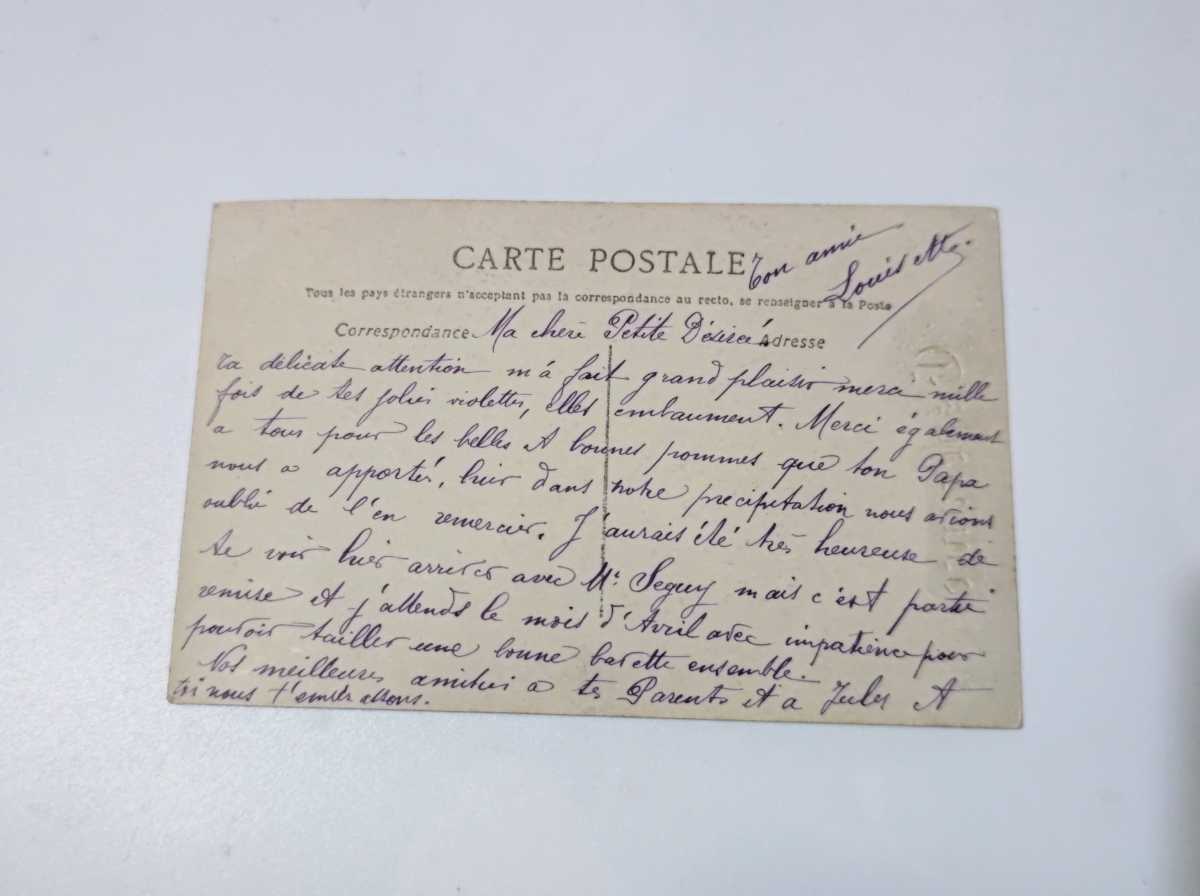 CARTE POSTALE
Ton amie
Louisette.
Tous les pays étrangers n'acceptent pas la correspondance au recto, se renseigner à la Poste
Correspondance
Adresse
Ma cheré Petite Désireé
ta délicate attention m'á fait grand plaisir merci mille
fois de tes jolies violettes, elles embaument. Merci également
a tous pour les belles et bonnes pommes que ton Papa
nous a apportés, hier dans notre précipitation nous avions
oublié de l'en remercier. J'aurais été très heureuse de
te voir hier arriver avec Mr Seguy mais c'est partie
remise et j'attends le mois d'Avril avec impatience pour
pouvoir tailler une bonne bavette ensemble.
Nos meilleures amitiés a tes Parents et a Jules et
toi nous t'embrassons.